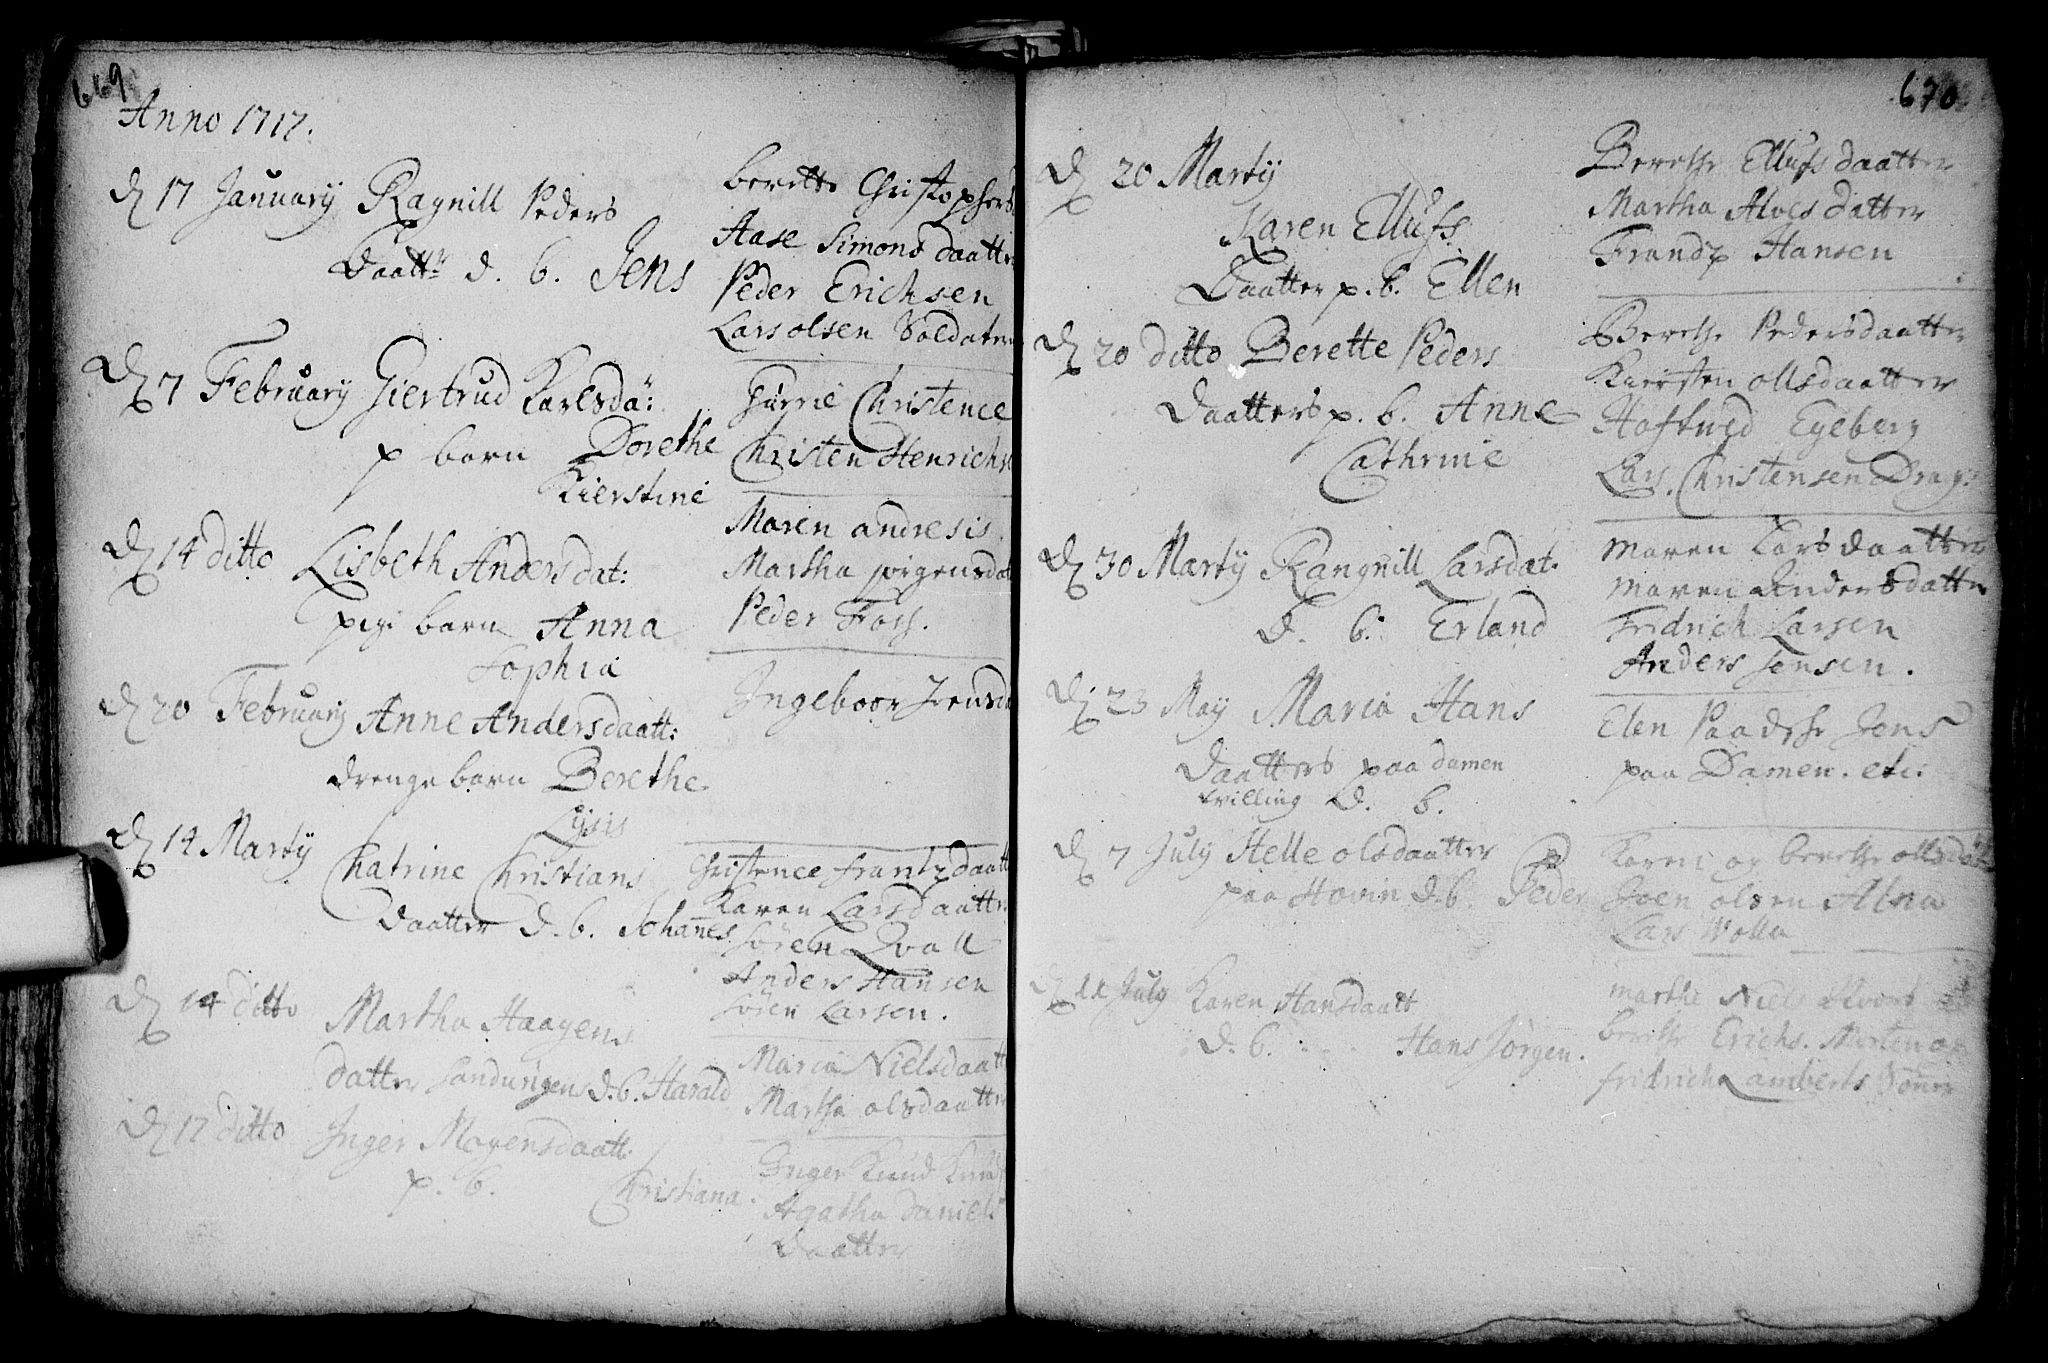 669
Anno 1717.
D 17 January Ragnill Peders
Daattr d. b. Jens
berette Christophers
Aase Simons daatter
Peder Erichsen
Lars olsen Soldater
D 7 February Giertrud Karlsda:
p barn Dorethe
Kierstine
Gurrie Christence
Christen Henrichs
D 14 ditto Lisbeth Anders dat:
pigi barn Anna
Sophia
Maren andresis.
Martha jørgensdat
Peder Foss.
D 20 February Anne Andersdaatt:
drenge barn Berethe
Lysis
Ingeboor Jensda
D 14 Martij Chatrine Christians
daatter d. b. Johanes
Christence frantzdaatt
Karen Larsdaatter
Søren Qvall
Anders Hansen
Søren Larsen.
D 14 ditto Martha Haagens
datter d. b. Harald
Maria Nielsdaatt
Martha olsdaatter
D 17 ditto Inger Mogensdaatt.
p. b. Christiana.
Inger Knud
Agatha Daniels
Daatter
670
D 20 Martij
Karen Ellufs
Daatter p. b. Ellen
Berethe Ellufs daatter
Martha Alves datter
Frandz Hansen
D 20 ditto Berette Peders
Daatters p. b. Anne
Cathrine
Berethe Pedersdaatter
Kiersten ollsdaatter
Egeberg
Lars Christensen Drag:
D 30 Martij Rangnill Larsdat.
D. b. Erland
Maren Larsdaatter
Maren Andersdatter
Fridrich Larsen
Anders Jensen.
D 23 May Maria Hans
Daatters paa damen
tvilling D. b.
Elen Jens
paa Damen. etc:
D 7 July Helle olsdaatter
paa Hovin d. b. Peder
Karen og berethe ollsdat
Joen olsen Alna
Lars Wolla
D 11 July Karen Hansdaatt
D. b. Hans Jørgen.
marthe Niels
berethe Erichs. Morten
fridrich Lamberts